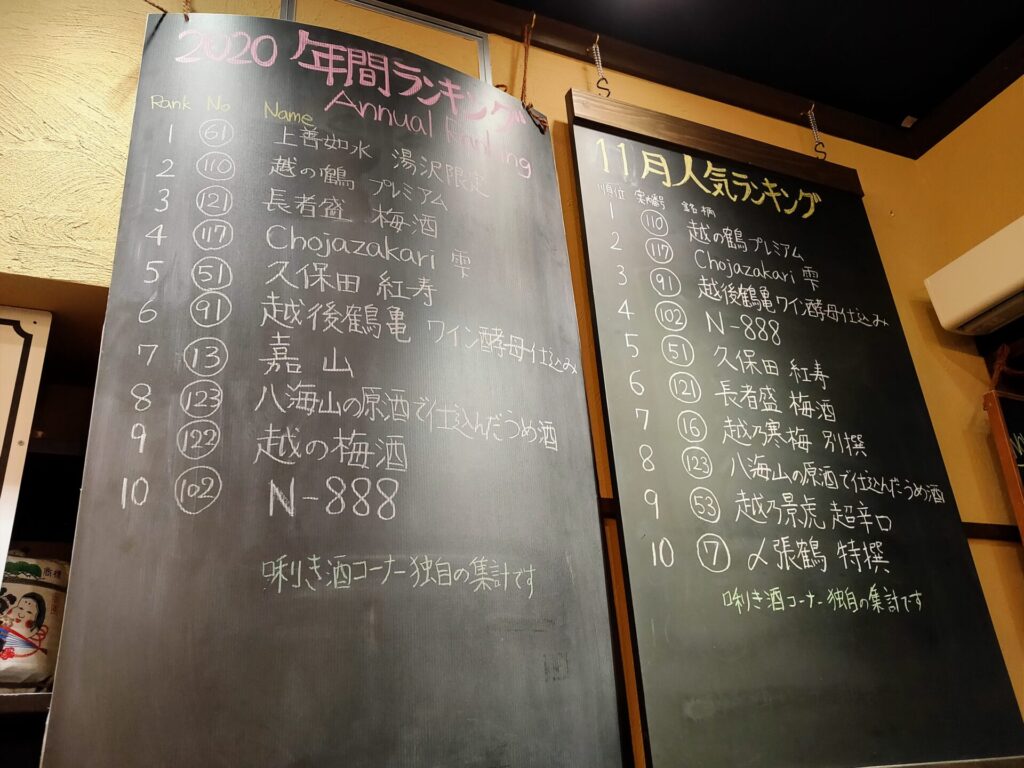 2020 年間ランキング
Annual Ranking
Rank No Name
1 61 上善如水 湯沢限定
2 110 越の鶴 プレミアム
3 121 長者盛 梅酒
4 117 Chojazakari 雫
5 51 久保田 紅寿
6 91 越後鶴亀 ワイン酵母仕込み
7 13 嘉山
8 123 八海山の原酒で仕込んだうめ酒
9 122 越の梅酒
10 102 N-888
唎き酒コーナー独自の集計です
11月人気ランキング
順位 銘柄
1 110 越の鶴プレミアム
2 117 Chojazakari 雫
3 91 越後鶴亀ワイン酵母仕込み
4 102 N-888
5 51 久保田 紅寿
6 121 長者盛 梅酒
7 16 越乃寒梅 別撰
8 123 八海山の原酒で仕込んだうめ酒
9 53 越乃景虎 超辛口
10 7 〆張鶴 特撰
唎き酒コーナー独自の集計です